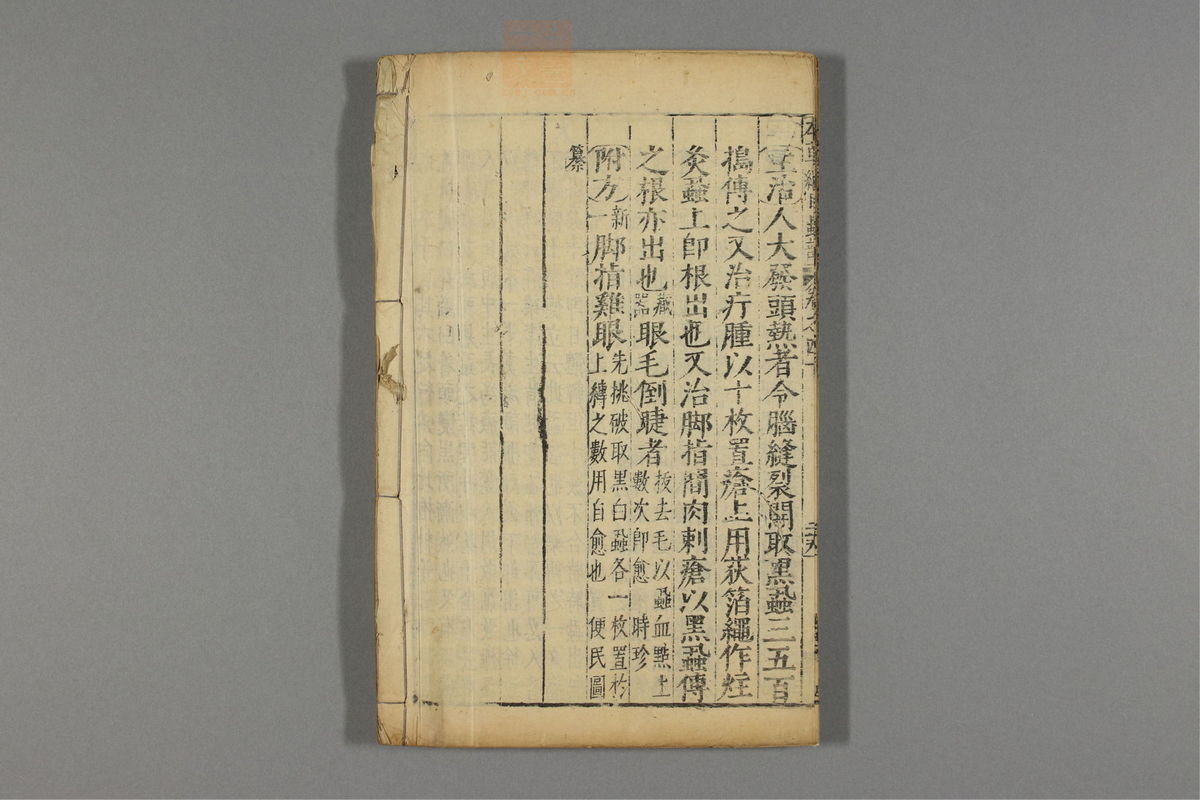 本草綱目蟲部 卷之四十
主治人大發頭熱者令腦縫裂開取黑蝨三五百
搗傅之又治疔腫以十枚置瘡上用荻箔繩作炷
灸蝨上即根出也又治脚指間肉刺瘡以黑蝨傅
之根亦出也藏器眼毛倒睫者拔去毛以蝨血點上數次即愈 時珍
附方新一脚指雞眼先挑破取黑白蝨各一枚置於上縛之數用自愈也 便民圖
纂